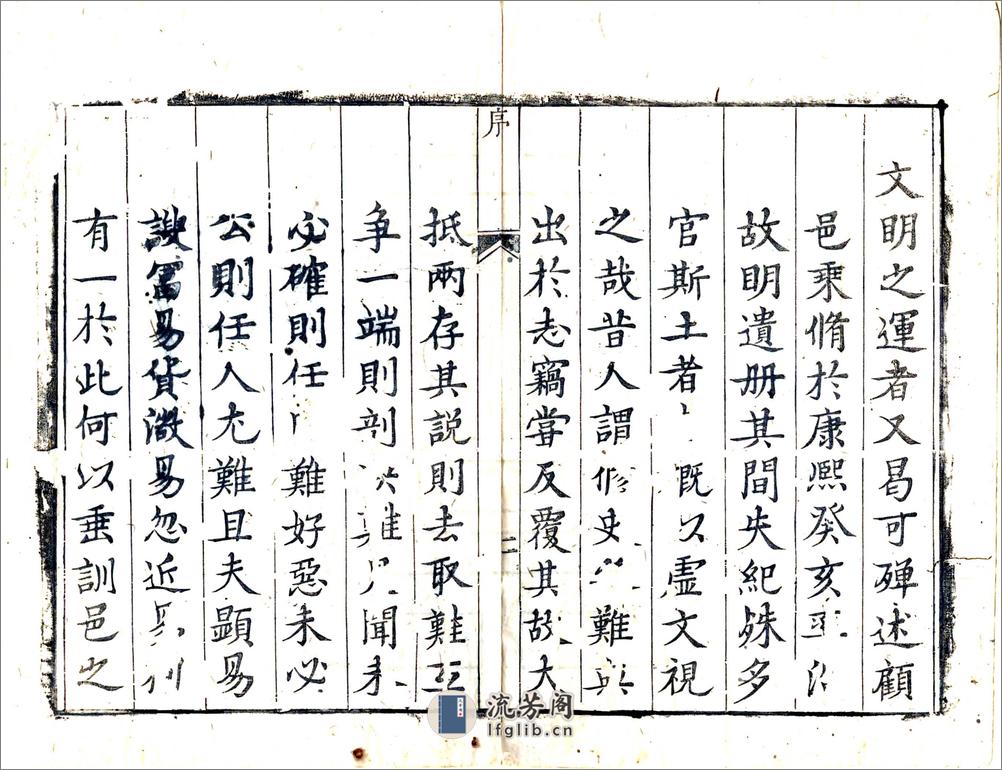 文明之運者又曷可殫述顧
邑乗脩於康熙癸亥
故明遺册其間失紀殊多
官斯土者 既以虛文視
之哉昔人謂修史 難
出於志竊嘗反覆其故大
抵兩存其説則去取難互
争一端則剖 難見聞未
必確則任 難好惡未必
公則任人尤難且夫顯易
諛富易貨微易忽近易
有一於此何以垂訓邑之
序
二
流芳阁
lfglib.cn